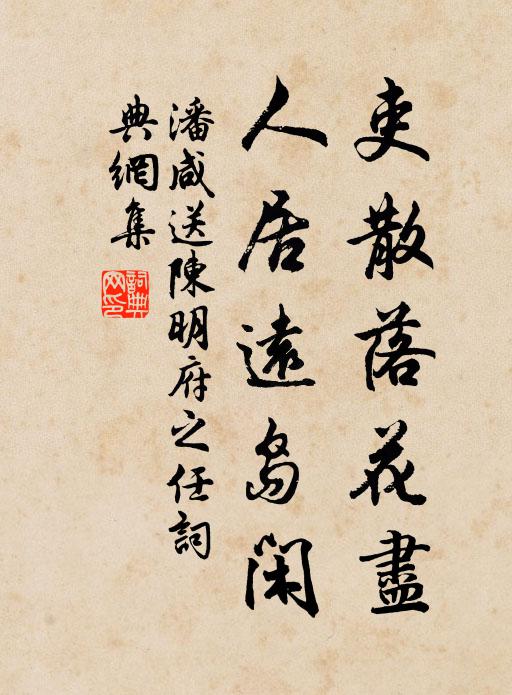 吏散落花盡
人居遠島閑
潘咸送陳明府之任詞
典網集
詞典网印